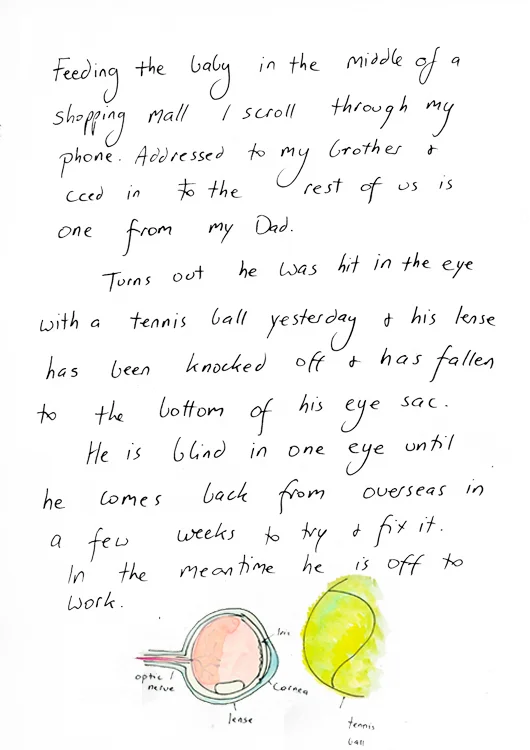 Feeding the baby in the middle of a
shopping mall I scroll through my
phone. Addressed to my brother &
cced in to the rest of us is
one from my Dad.
Turns out he was hit in the eye
with a tennis ball yesterday & his lense
has been knocked off & has fallen
to the bottom of his eye sac.
He is blind in one eye until
he comes back from overseas in
a few weeks to try & fix it.
In the meantime he is off to
work.
iris
optic
nerve
cornea
lense
tennis
ball